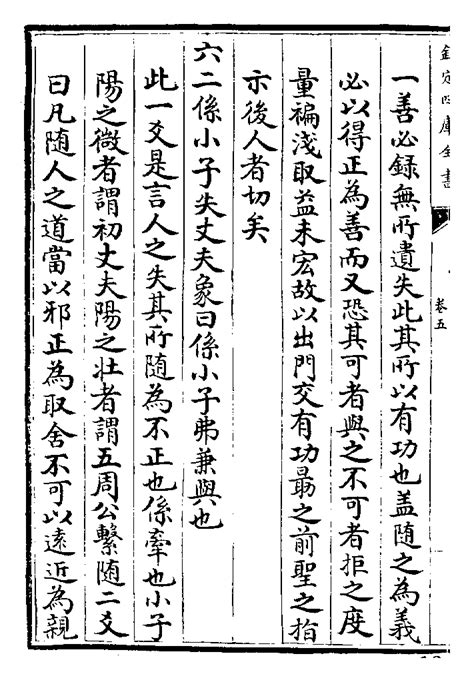 欽定四庫全書
卷五
一善必録無所遺失此其所以有功也蓋随之為義
必以得正為善而又恐其可者與之不可者拒之度
量褊淺取益未宏故以出門交有功朂之前聖之指
示後人者切矣
六二係小子失丈夫象曰係小子弗兼與也
此一爻是言人之失其所随為不正也係牽也小子
陽之微者謂初丈夫陽之壯者謂五周公繫随二爻
曰凡随人之道當以邪正為取舍不可以遠近為親